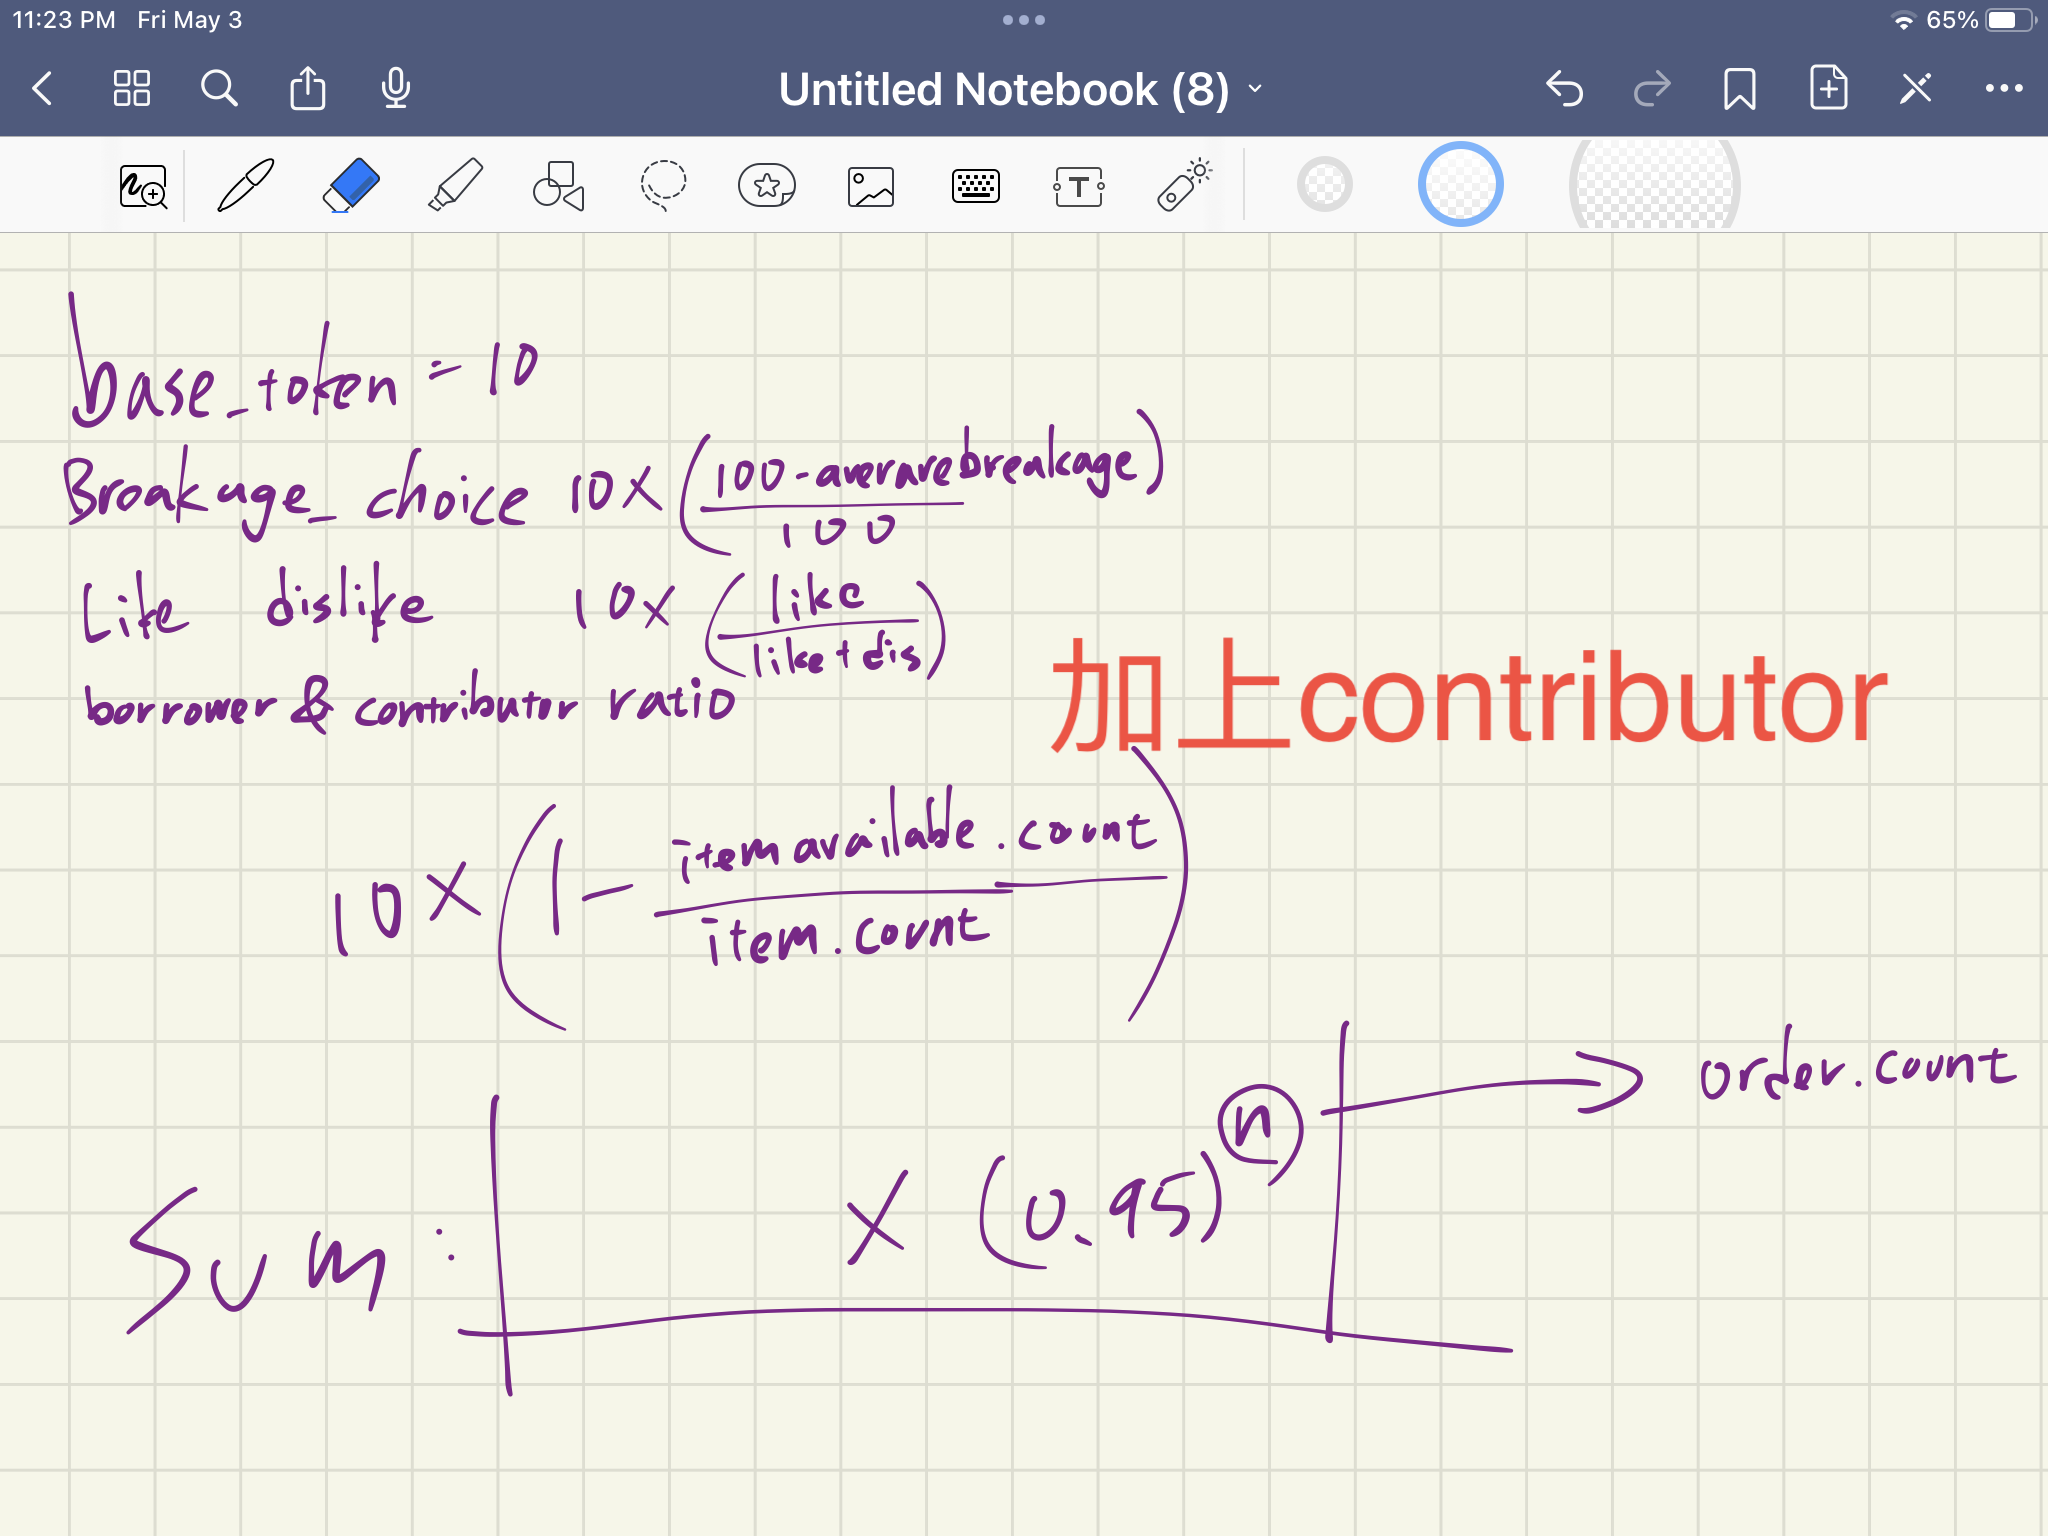 11:23 PM Fri May 3
65%
Untitled Notebook (8)
T
base_token = 10
Breakage_choice 10 × (100 - averarebreakage / 100)
Like dislike 10 × (like / like + dis)
borrower & contributor ratio
加上contributor
10 × (1 - itemavailable.count / item.count)
Sum: × (0.95)^n → order.count